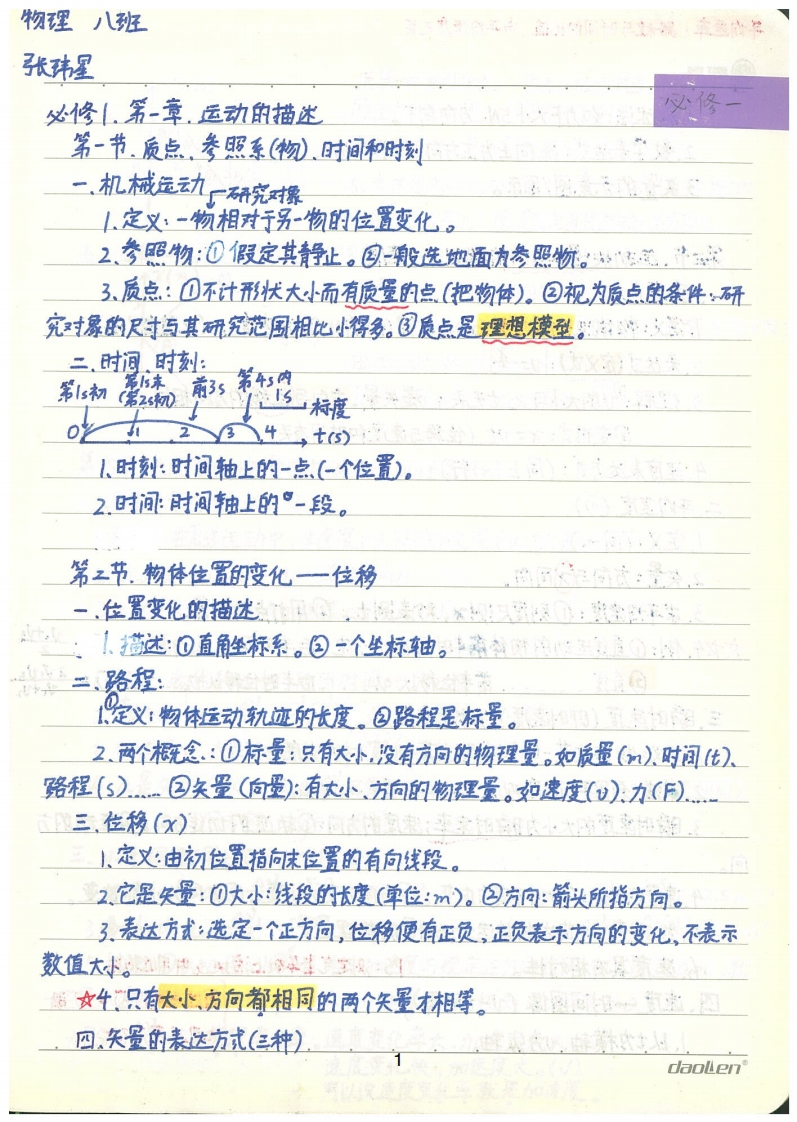 物理 八班
张玮星
必修一
必修1.第一章.运动的描述
第一节.质点、参照系(物)、时间和时刻
一.机械运动
研究对象
1.定义:一物相对于另一物的位置变化。
2.参照物:①假定其静止。②一般选地面为参照物。
3.质点:①不计形状大小而有质量的点(把物体)。②视为质点的条件:研
究对象的尺寸与其研究范围相比小得多。③质点是理想模型。
二.时间、时刻:
第1s初 第1s末 (第2s初) 前3s 第4s内 1s 标度
0 1 2 3 4 t(s)
1.时刻:时间轴上的一点(一个位置)。
2.时间:时间轴上的一段。
第二节.物体位置的变化——位移
一.位置变化的描述
1.描述:①直角坐标系。②一个坐标轴。
二.路程:
1.①定义:物体运动轨迹的长度。②路程是标量。
2.两个概念:①标量:只有大小,没有方向的物理量。如质量(m)、时间(t)、
路程(s)…… ②矢量(向量):有大小、方向的物理量。如速度(v)、力(F)……
三.位移(x)
1.定义:由初位置指向末位置的有向线段。
2.它是矢量:①大小:线段的长度(单位:m)。②方向:箭头所指方向。
3.表达方式:选定一个正方向,位移便有正负,正负表示方向的变化,不表示
数值大小。
☆4.只有大小、方向都相同的两个矢量才相等。
四.矢量的表达方式(三种)
1
daolen®